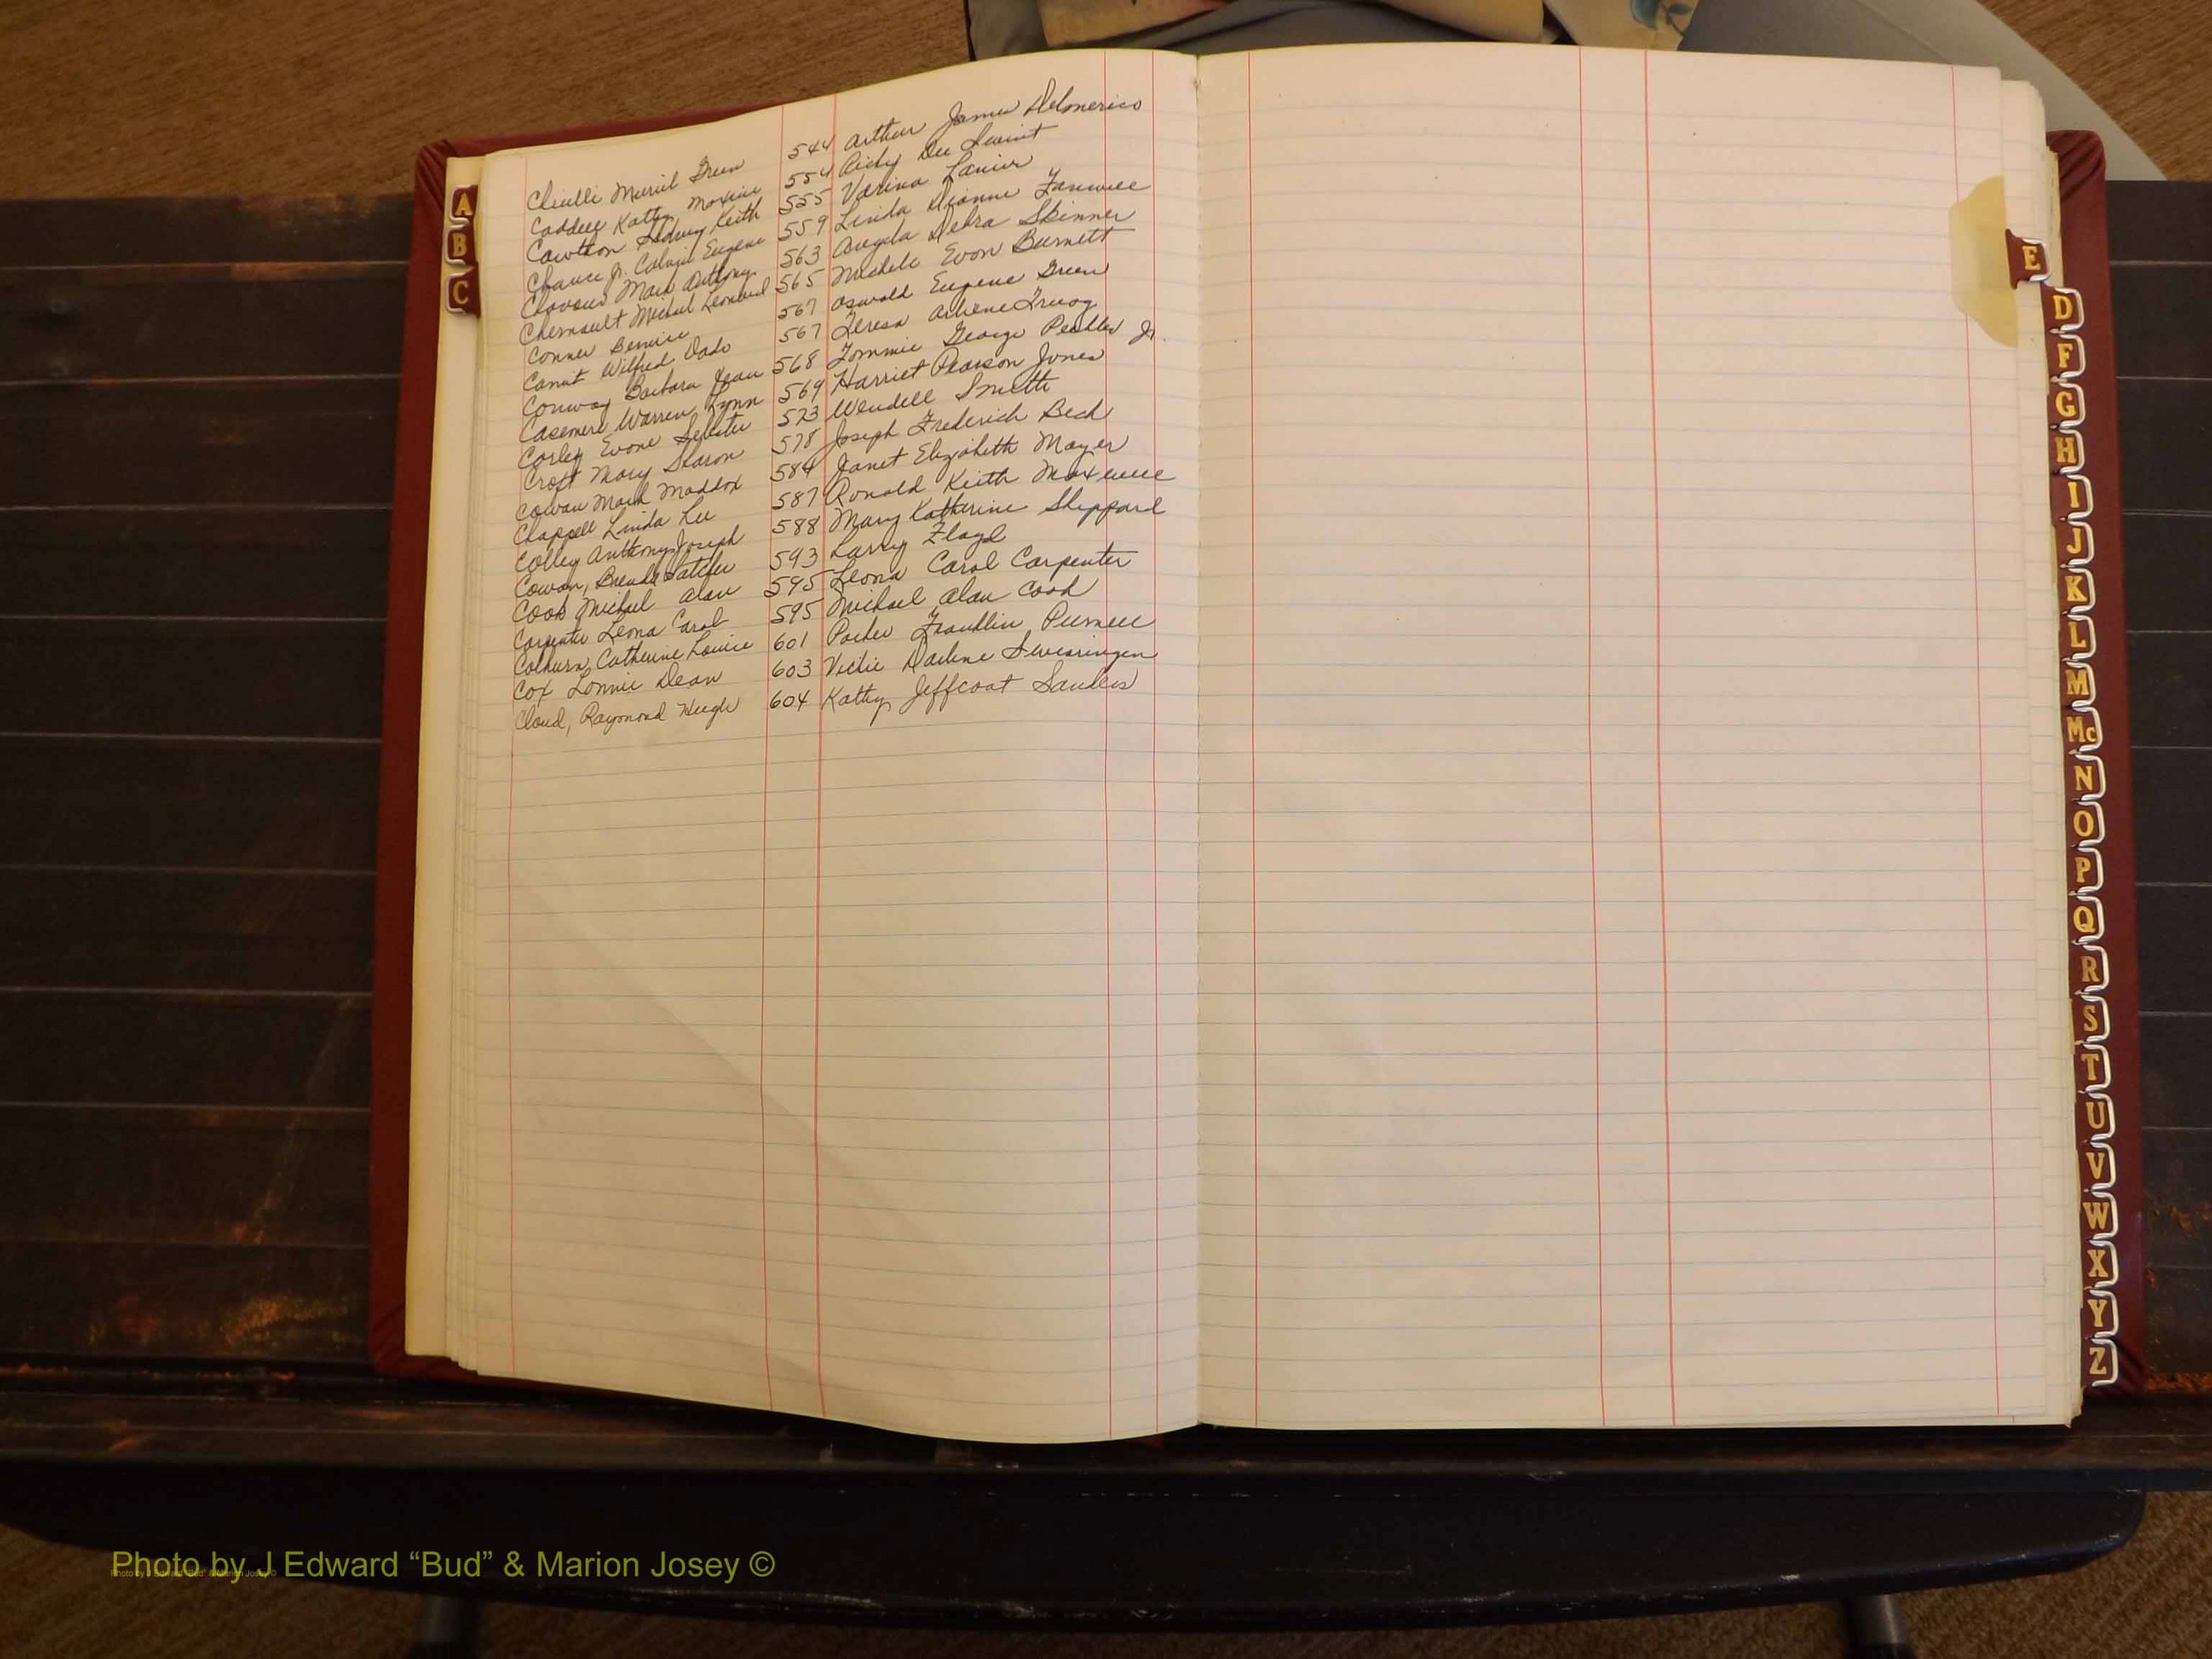 Green 544 Arthur James Delomerico
Caddell Kathy Maxine 554 Ricky Dee Swint
Cawthon Keith 555 Varina Lanier
Chance Jr. Calvin Eugene 559 Linda Dianne
Chavous Mark Anthony 563 Angela Debra Skinner
Chernault Michael Leonard 565 Michele Evon Burnett
Conner Bernice 567 Oswald Eugene Green
Canut Wilfred Dado 567 Teresa Arlene Truog
Conway Barbara Jean 568 Tommie George Peebles Jr.
Casemere Warren Lynn 569 Harriet Pearson Jones
Corley Evone 573 Wendell Smith
Croft Mary Sharon 578 Joseph Frederich Beck
Cowan Mark Maddox 584 Janet Elizabeth Mayer
Chappell Linda Lee 587 Ronald Keith Maxwell
Colley Anthony Joseph 588 Mary Katherine Sheppard
Cowan, Brenda Satcher 593 Larry Floyd
Cook Michael Alan 595 Leona Carol Carpenter
Carpenter Leona Carol 595 Michael Alan Cook
Catherine Louise 601 Parker Franklin Purnell
Cox Lonnie Dean 603 Vickie Darlene Swearingen
Cloud, Raymond Hugh 604 Kathy Jeffcoat Sanders
A
B
C
E
D
F
G
H
I
J
K
L
M
Mc
N
O
P
Q
R
S
T
U
V
W
X
Y
Z
Photo by J Edward “Bud” & Marion Josey ©
Photo by J Edward “Bud” & Marion Josey ©